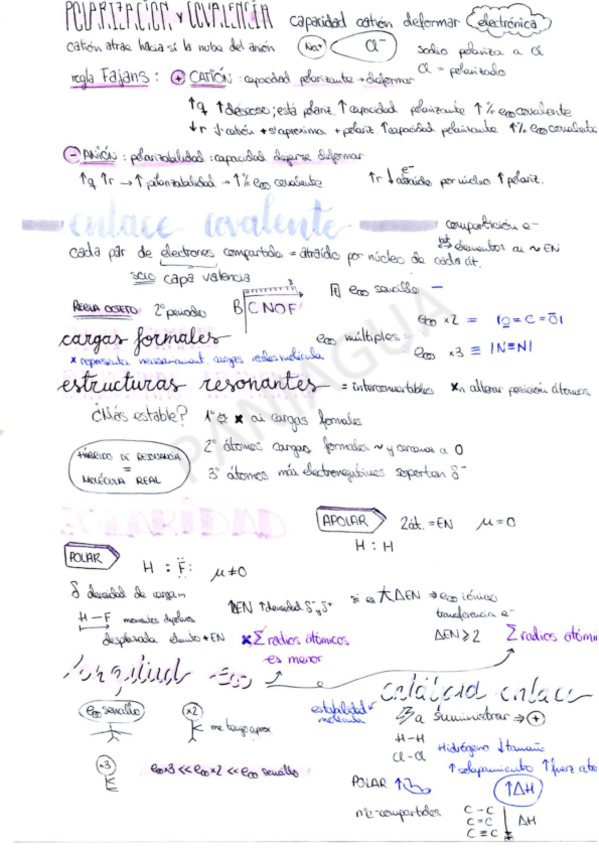 POLARIZACIÓN Y COVALENCIA capacidad catión deformar electrónica
catión atrae hacia sí la nube del anión Na+ Cl- sodio polariza a Cl
Cl = polarizado
regla Fajans: + CATIÓN: capacidad polarizante → deformar
↑q ↑ capacidad polarizante ↑% covalente
↓r ↓ catión + s'aproxima + polariz ↑capacidad polarizante ↑% covalente
- ANIÓN: polarizabilidad: capacidad dejarse deformar
↑q ↑r → ↑ polarizabilidad → ↑% covalente ↑r ↓ atraído por núcleo ↑ polariz.
e-
enlace covalente compartición e-
elementos ~ EN
cada par de electrones compartido = atraído por núcleo de cada át.
solo capa valencia
REGLA OCTETO 2º periodo B C N O F sencillo —
x2 = |O=C=O|
cargas formales múltiples x3 ≡ |N≡N|
x representa necesariamente cargas reales molécula
estructuras resonantes = interconvertibles x n alterar posición átomos
¿Más estable? 1º x cargas formales
2º átomos cargas formales ~ y cercanas a 0
HÍBRIDO DE RESONANCIA
=
MOLÉCULA REAL
3º átomos más electronegativos soportan δ-
PANIAGUA
POLARIDAD
APOLAR 2 át. = EN μ=0
H : H
POLAR
H : F: μ≠0
δ densidad de carga
H—F momento dipolar
desplazada + EN
↑EN ↑densidad δ- y δ+
x Σ radios atómicos
es menor
si es ΔEN → iónico
transferencia e-
ΔEN ≥ 2 Σ radios atómi
longitud
entalpía enlace
sencillo x2 me tengo aprox
x3 x3 << x2 << sencillo
estabilidad
molécula
a suministrar ⇒ +
H-H
Cl-Cl Hidrógeno ↓tamaño
↑solapamiento ↑fuerz
POLAR ↑ ↑ΔH
nºe- compartidos C-C
C=C ΔH
C≡C